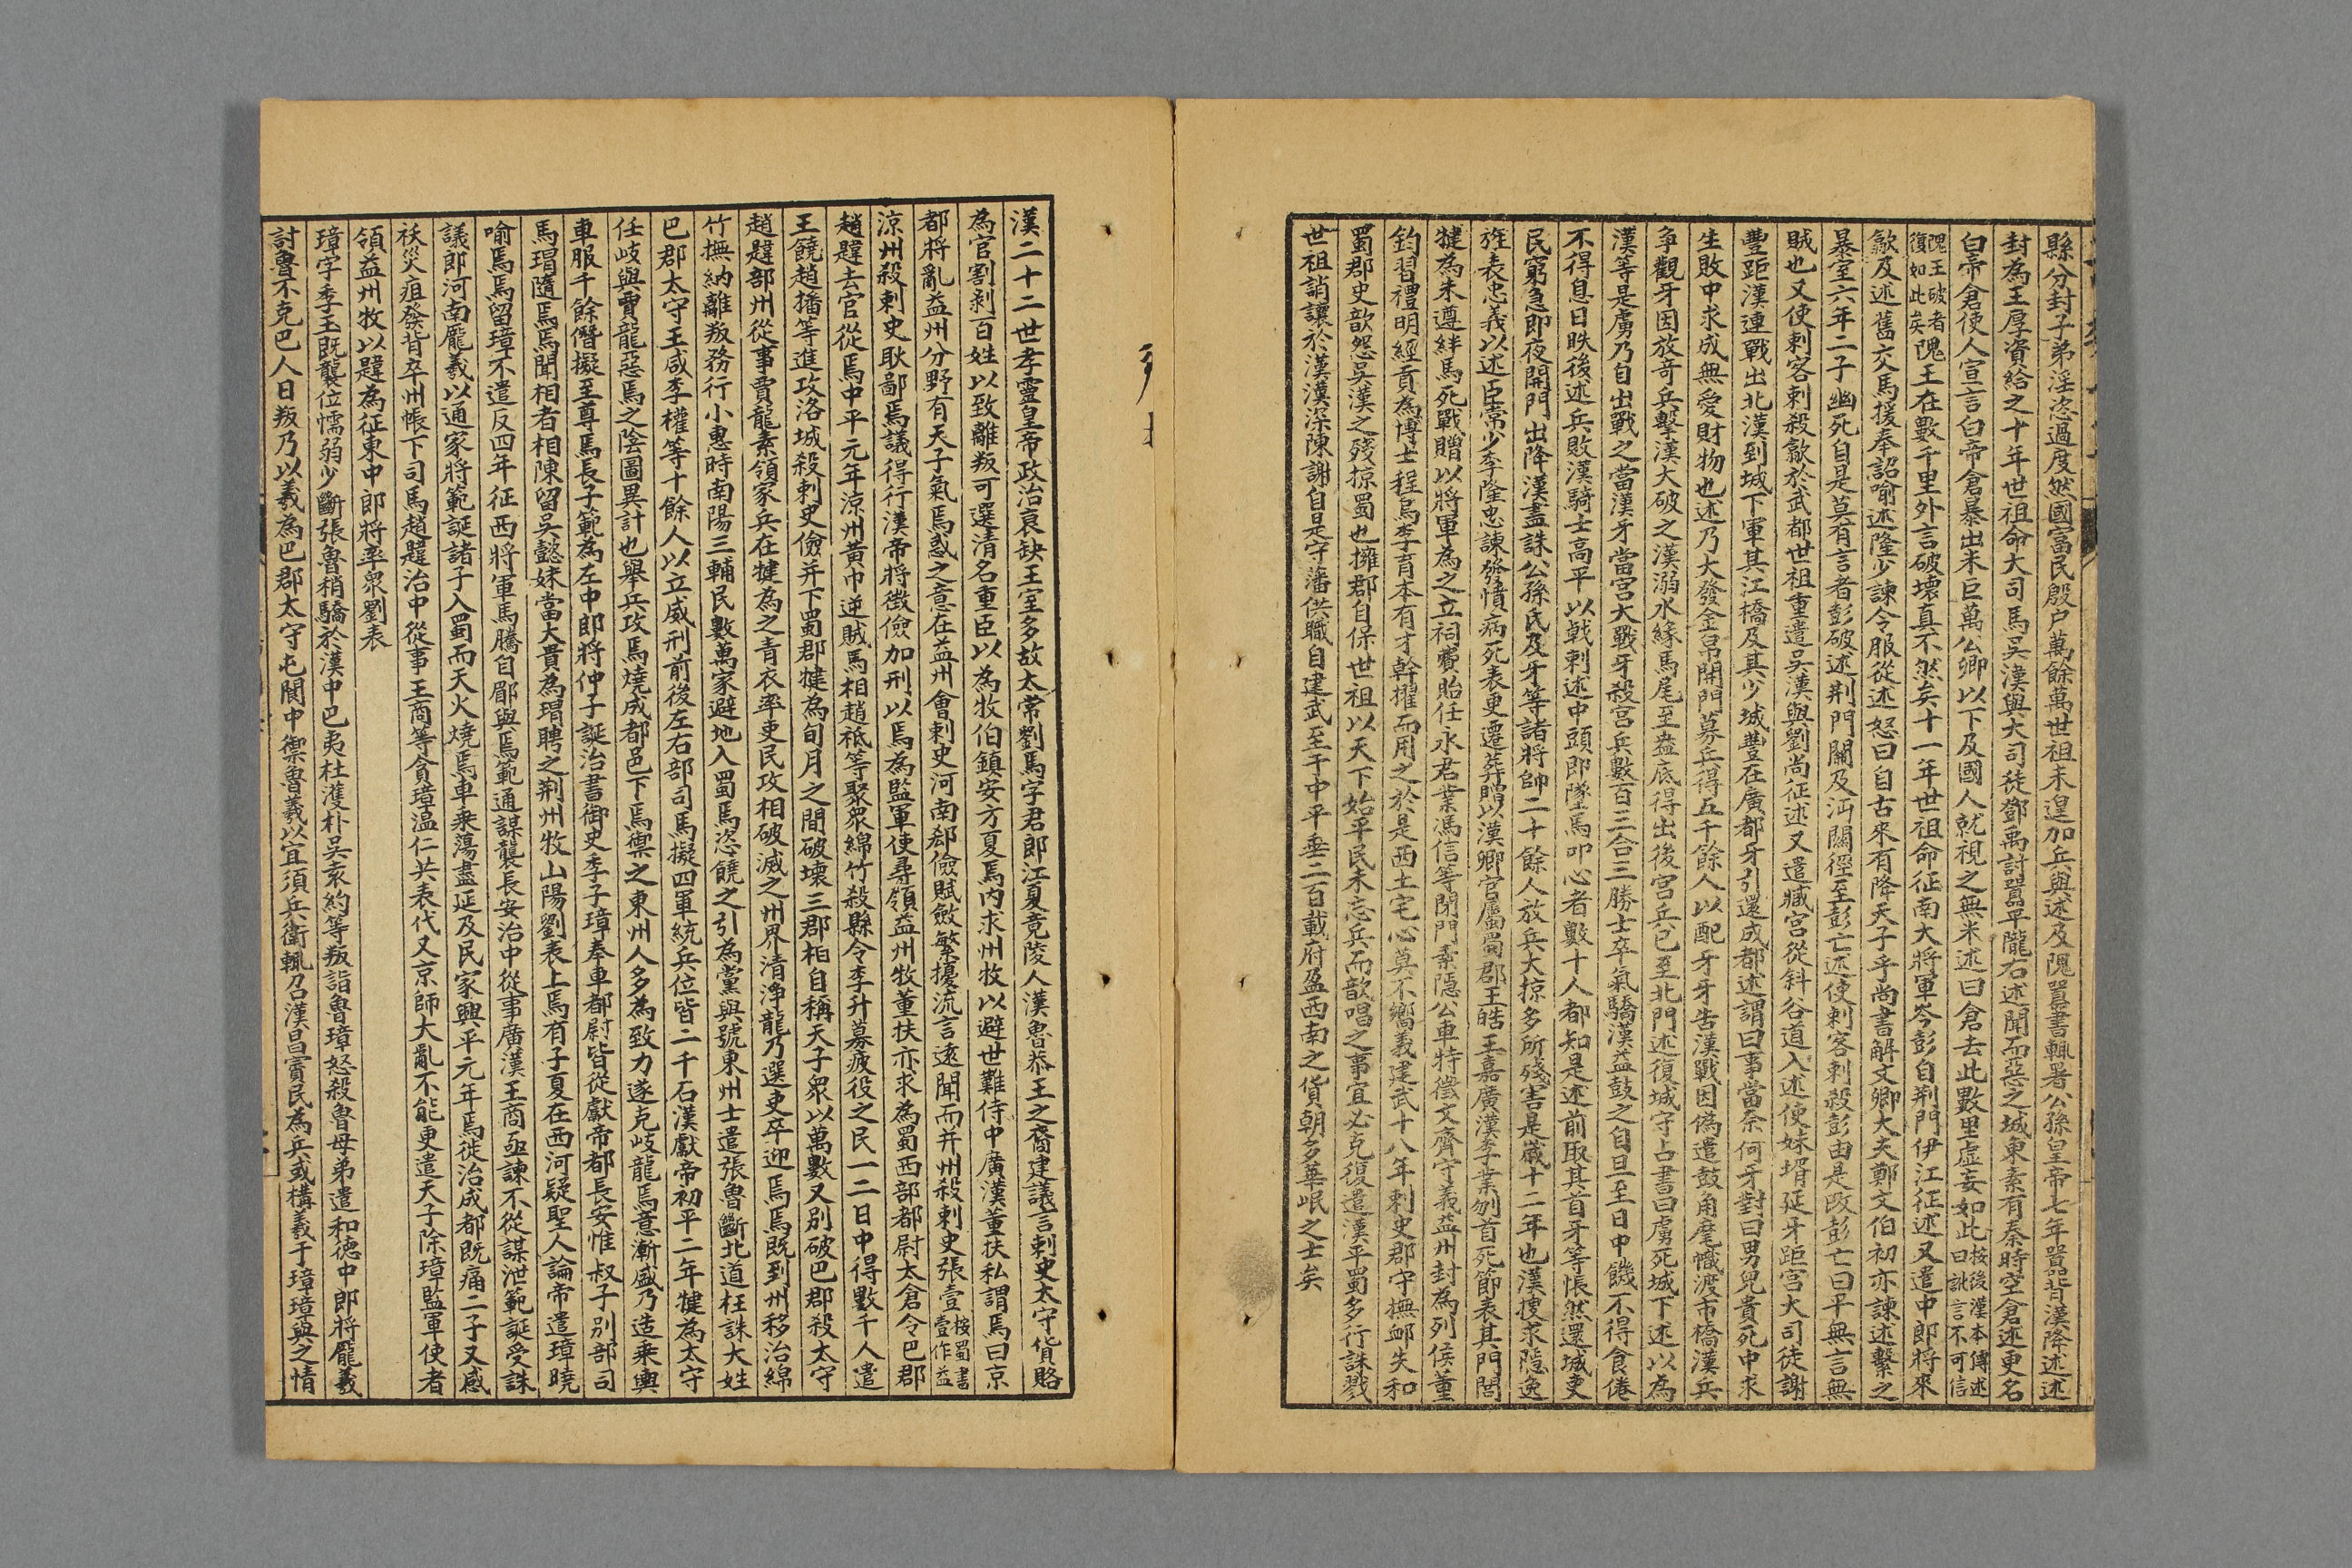 縣分封子弟淫恣過度然國富民殷户萬餘萬世祖未遑加兵與述及隗囂書輒署公孫皇帝七年囂背漢降述述
封為王厚資給之十年世祖命大司馬吳漢與大司徒鄧禹討囂平隴右述聞而惡之城東素有秦時空倉述更名
白帝倉使人宣言白帝倉暴出米巨萬公卿以下及國人就視之無米述曰倉去此數里虛妄如此按後漢本傳述曰訛言不可信
隗王破者復如此矣隗王在數千里外言破壞真不然矣十一年世祖命征南大將軍岑彭自荆門伊江征述又遣中郎將來
歙及述舊交馬援奉詔喻述隆少諫令服從述怒曰自古來有降天子乎尚書解文卿大夫鄭文伯初亦諫述繫之
暴室六年二子幽死自是莫有言者彭破述荆門關及沔關徑至彭亡述使刺客刺殺彭由是改彭亡曰平無言無
賊也又使刺客刺殺歙於武都世祖重遣吳漢與劉尚征述又遣臧宫從斜谷道入述使妹壻延牙距宫大司徒謝
豐距漢連戰出北漢到城下軍其江橋及其少城豐在廣都牙引還成都述謂曰事當奈何牙對曰男兒貴死中求
生敗中求成無愛財物也述乃大發金帛開門募兵得五千餘人以配牙牙告漢戰因偽遣鼓角麾幟渡市橋漢兵
爭觀牙因放奇兵擊漢大破之漢溺水緣馬尾至盎底得出後宫兵已至北門述復城守占書曰虜死城下述以為
漢等是虜乃自出戰之當漢牙當宫大戰牙殺宫兵數百三合三勝士卒氣驕漢益鼓之自旦至日中饑不得食倦
不得息日昳後述兵敗漢騎士高平以戟刺述中頭即墜馬叩心者數十人都知是述前取其首牙等悵然還城吏
民窮急即夜開門出降漢盡誅公孫氏及牙等諸將帥二十餘人放兵大掠多所殘害是歲十二年也漢搜求隱逸
旌表忠義以述臣常少李隆忠諫發憤病死表更遷葬贈以漢卿官屬蜀郡王皓王嘉廣漢李業刎首死節表其門閭
犍為朱遵絆馬死戰贈以將軍為之立祠費貽任永君業馮信等閉門素隱公車特徵文齊守義益州封為列侯董
鈞習禮明經貢為博士程烏李育本有才幹擢而用之於是西土宅心莫不嚮義建武十八年刺史郡守撫卹失和
蜀郡史歆怨吳漢之殘掠蜀也擁郡自保世祖以天下始平民未忘兵而歆唱之事宜必克復遣漢平蜀多行誅戮
世祖誚讓於漢漢深陳謝自是守藩供職自建武至于中平垂二百載府盈西南之貨朝多華岷之士矣
漢二十二世孝靈皇帝政治哀缺王室多故太常劉焉字君郎江夏竟陵人漢魯恭王之裔建議言刺史太守貨賂
為官割剥百姓以致離叛可選清名重臣以為牧伯鎮安方夏焉内求州牧以避世難侍中廣漢董扶私謂焉曰京
都將亂益州分野有天子氣焉惑之意在益州會刺史河南郄儉賦斂繁擾流言遠聞而并州殺刺史張壹按蜀書壹作益
涼州殺刺史耿鄙焉議得行漢帝將徵儉加刑以焉為監軍使尋領益州牧董扶亦求為蜀西部都尉太倉令巴郡
趙韙去官從焉中平元年涼州黄巾逆賊馬相趙祗等聚衆綿竹殺縣令李升募疲役之民一二日中得數千人遣
王饒趙播等進攻洛城殺刺史儉并下蜀郡犍為旬月之間破壞三郡相自稱天子衆以萬數又别破巴郡殺太守
趙韙部州從事賈龍素領家兵在犍為之青衣率吏民攻相破滅之州界清淨龍乃選吏卒迎焉焉既到州移治綿
竹撫納離叛務行小惠時南陽三輔民數萬家避地入蜀焉恣饒之引為黨與號東州士遣張魯斷北道枉誅大姓
巴郡太守王咸李權等十餘人以立威刑前後左右部司馬擬四軍統兵位皆二千石漢獻帝初平二年犍為太守
任岐與賈龍惡焉之陰圖異計也舉兵攻焉燒成都邑下焉禦之東州人多為致力遂克岐龍焉意漸盛乃造乘輿
車服千餘僭擬至尊焉長子範為左中郎將仲子誕治書御史季子璋奉車都尉皆從獻帝都長安惟叔子别部司
馬瑁隨焉焉聞相者相陳留吳懿妹當大貴為瑁聘之荆州牧山陽劉表上焉有子夏在西河疑聖人論帝遣璋曉
喻焉焉留璋不遣反四年征西將軍馬騰自郿與焉範通謀襲長安治中從事廣漢王商亟諫不從謀泄範誕受誅
議郎河南龐羲以通家將範誕諸子入蜀而天火燒焉車乘蕩盡延及民家興平元年焉徙治成都既痛二子又感
祅災疽發背卒州帳下司馬趙韙治中從事王商等貪璋温仁共表代又京師大亂不能更遣天子除璋監軍使者
領益州牧以韙為征東中郎將率衆劉表
璋字季玉既襲位懦弱少斷張魯稍驕於漢中巴夷杜濩朴吳亥約等叛詣魯璋怒殺魯母弟遣和德中郎將龐羲
討魯不克巴人日叛乃以羲為巴郡太守屯閬中禦魯羲以宜須兵衛輒召漢昌賨民為兵或構羲于璋璋與之情